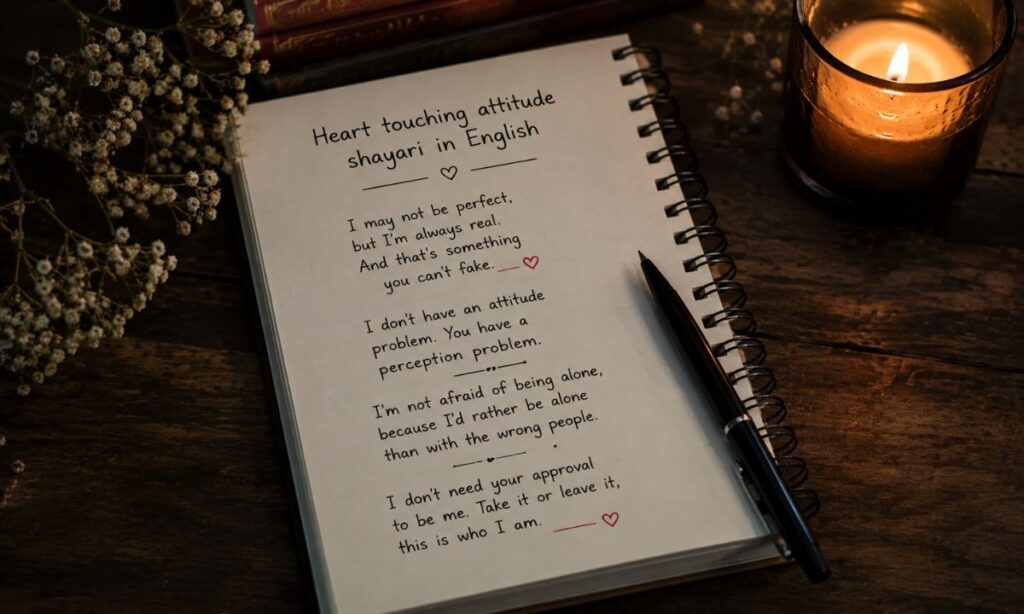 Heart touching attitude
shayari in English
I may not be perfect,
but I'm always real.
And that's something
you can't fake.
I don't have an attitude
problem. You have a
perception problem.
I'm not afraid of being alone,
because I'd rather be alone
than with the wrong people.
I don't need your approval
to be me. Take it or leave it,
this is who I am.